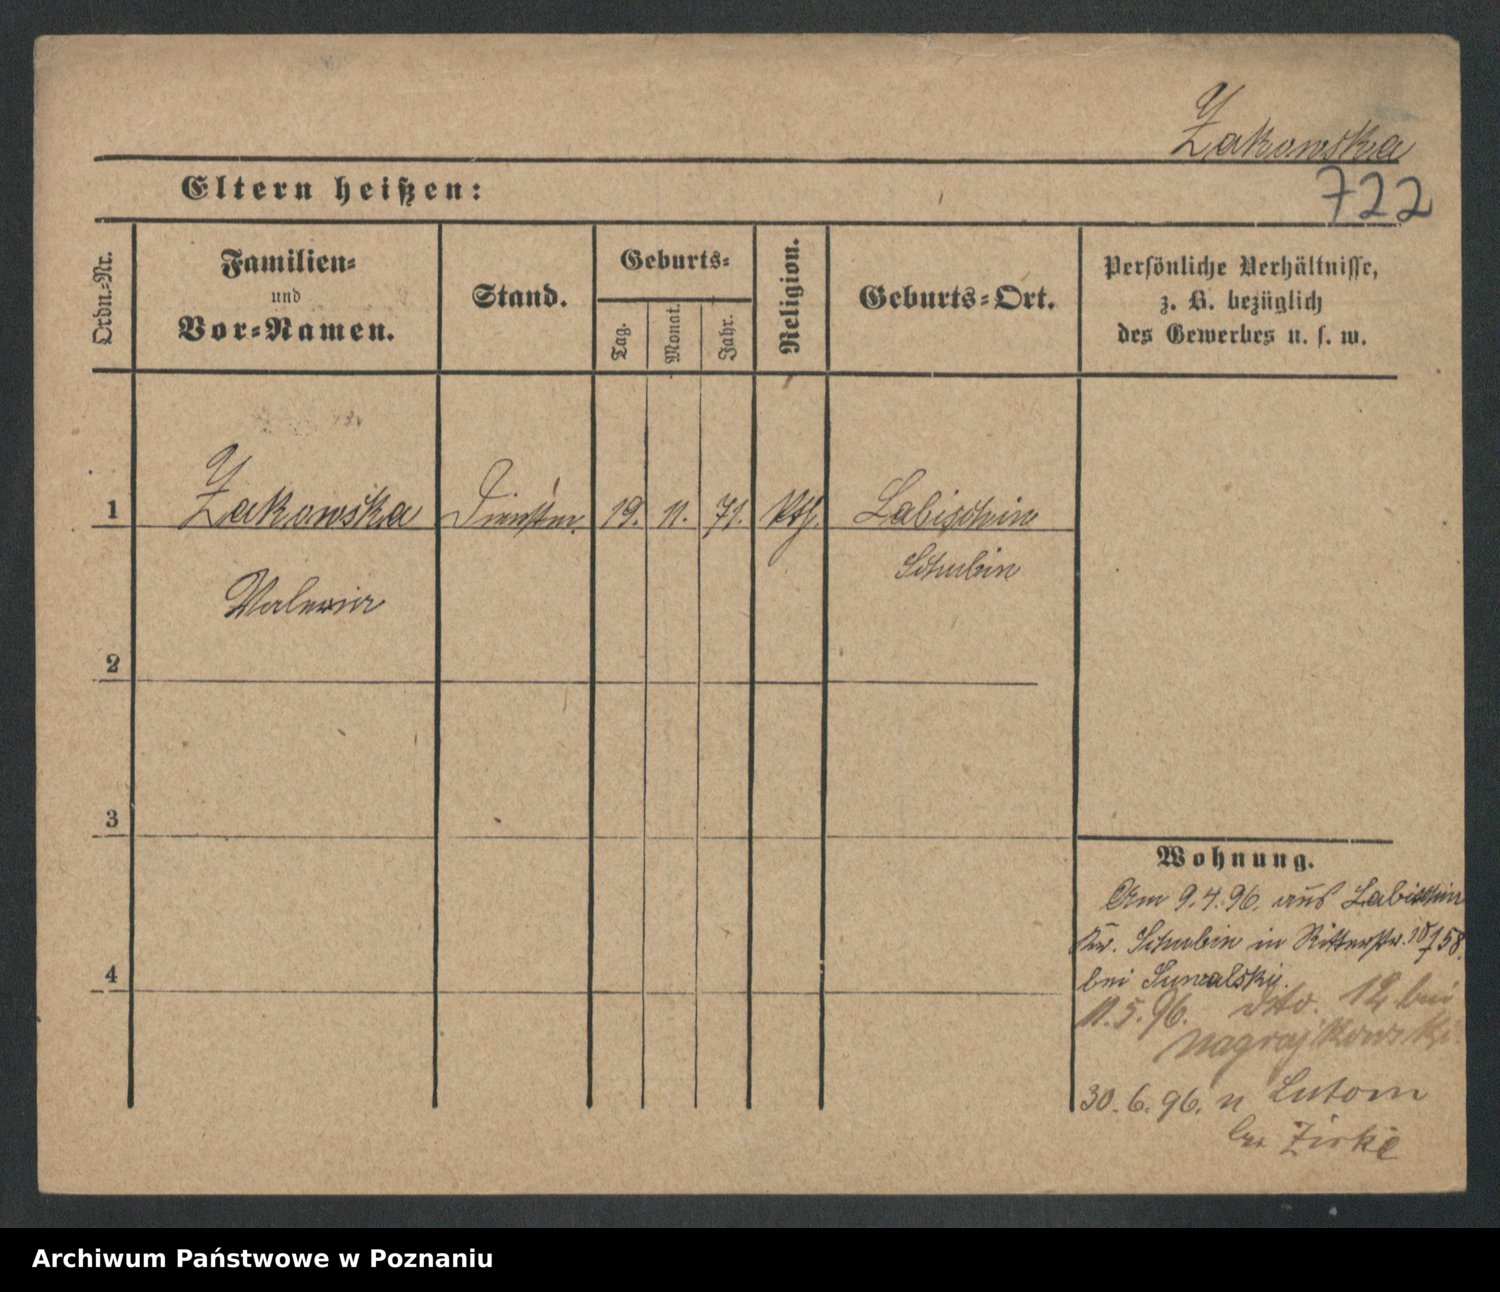 Zakowska
722
Eltern heißen:
Ordn.-Nr.
Familien-
und
Vor-Namen.
Stand.
Geburts-
Tag.
Monat.
Jahr.
Religion.
Geburts-Ort.
Persönliche Verhältnisse,
z. B. bezüglich
des Gewerbes u. s. w.
1 Zakowska 19. 11. 71. kth. Labischin
Schubin
Valeria
2
3
4
Wohnung.
Am 9.4.96. aus Labischin
Kr. Schubin in Ritterstr.
bei Suwalski.
11.5.96. dto. 12 bei
Nagrajkowski
30.6.96. n Lutom
bei Zirke
Archiwum Państwowe w Poznaniu